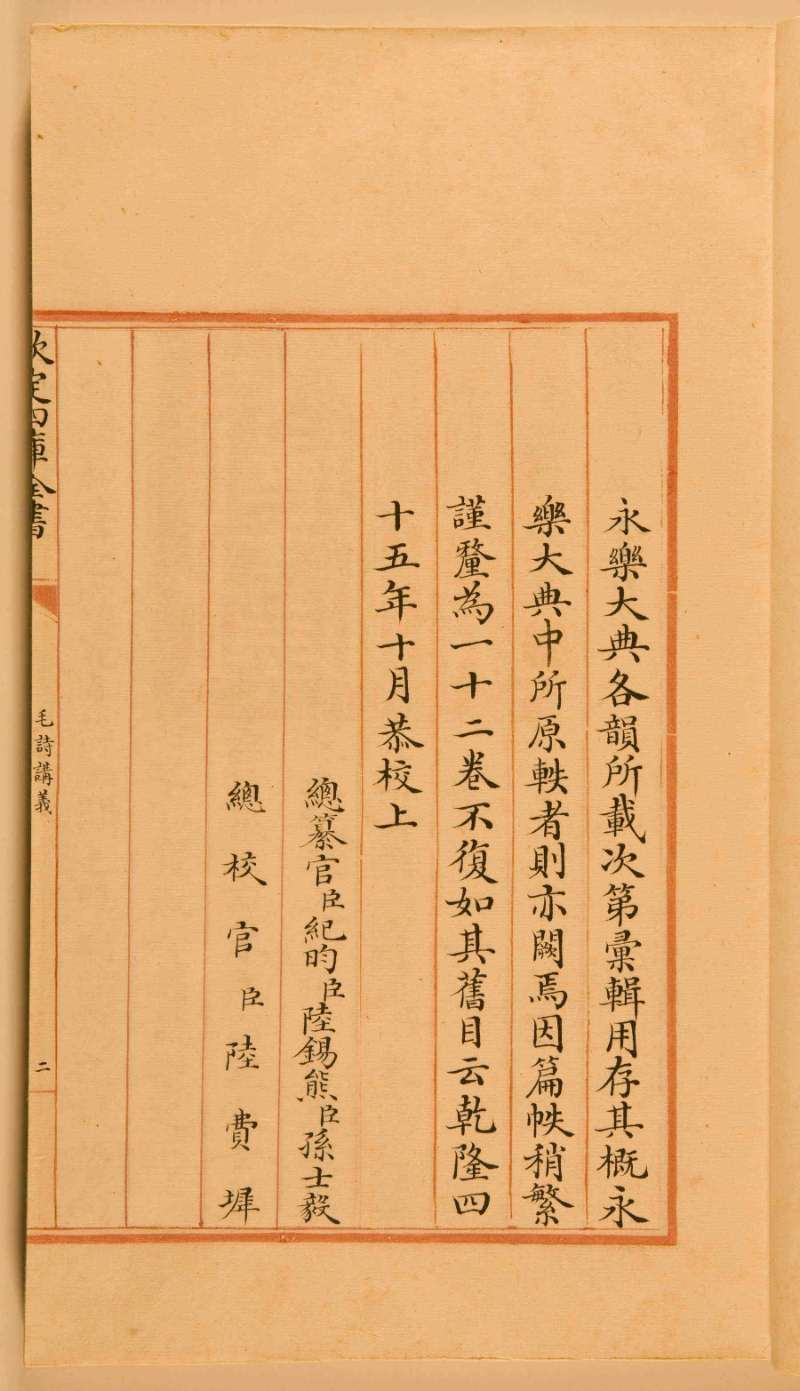 永樂大典各韻所載次第彙輯用存其槪永
樂大典中所原軼者則亦闕焉因篇帙稍繁
謹釐為一十二卷不復如其舊目云乾隆四
十五年十月恭校上
總纂官臣紀昀臣陸錫熊臣孫士毅
總校官臣陸費墀
欽定四庫全書
毛詩講義
二